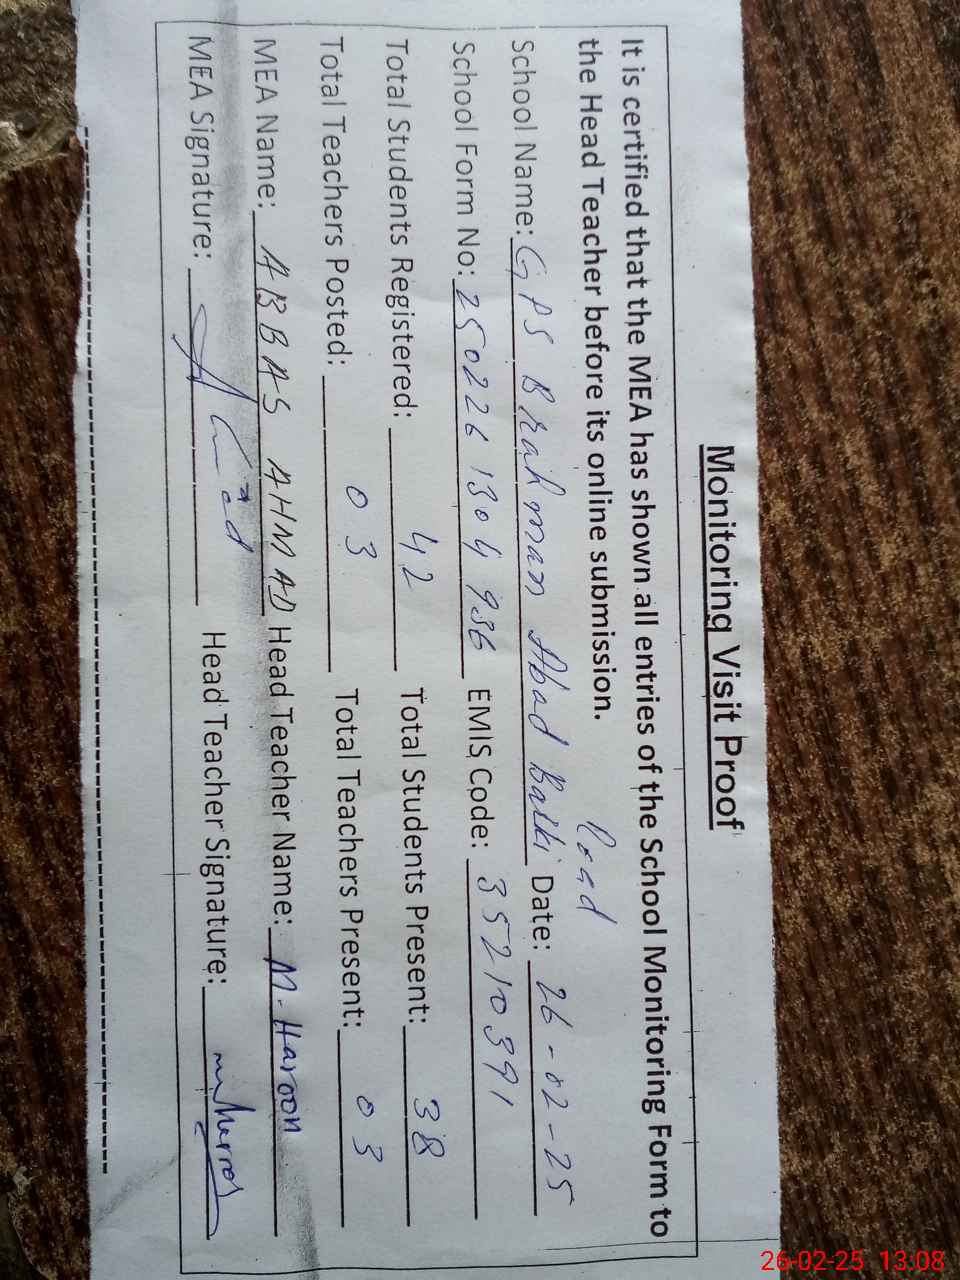 Monitoring Visit Proof
It is certified that the MEA has shown all entries of the School Monitoring Form to
the Head Teacher before its online submission.
Road
School Name: GPS Brahman Abad Barki Date: 26-02-25
School Form No: 250226 1304 936 EMIS Code: 35210391
Total Students Registered: 42 Total Students Present: 38
Total Teachers Posted: 03 Total Teachers Present: 03
MEA Name: ABBAS AHMAD Head Teacher Name: M. Haroon
MEA Signature: Head Teacher Signature:
26-02-25 13:08